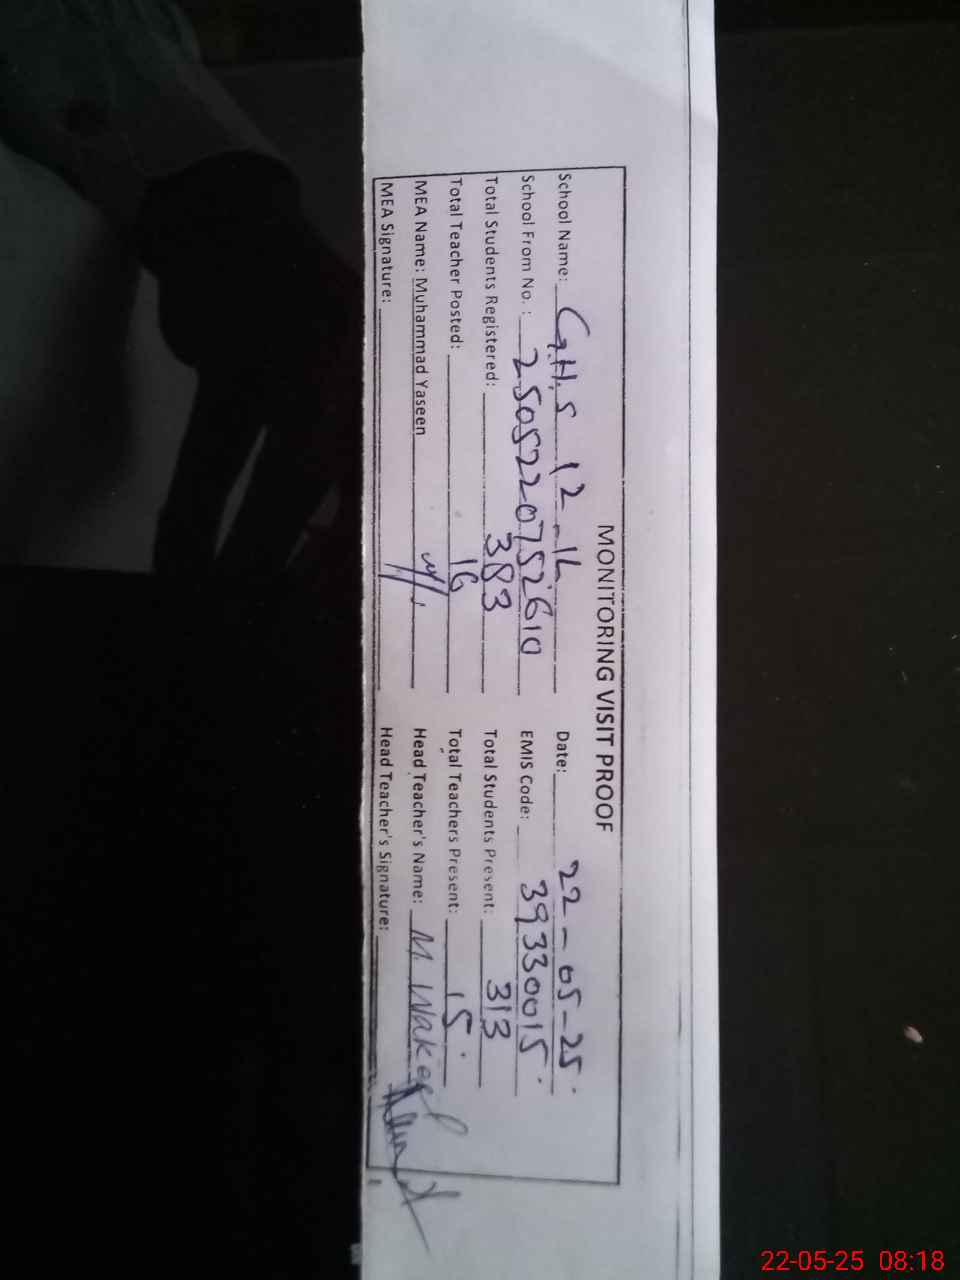 MONITORING VISIT PROOF
School Name: G.H.S 12-1L Date: 22-05-25
School From No. : 2505220752610 EMIS Code: 39330015
Total Students Registered: 383 Total Students Present: 313
Total Teacher Posted: 16 Total Teachers Present: 15
MEA Name: Muhammad Yaseen Head Teacher's Name: M. Wakeel
MEA Signature: Head Teacher's Signature:
22-05-25 08:18